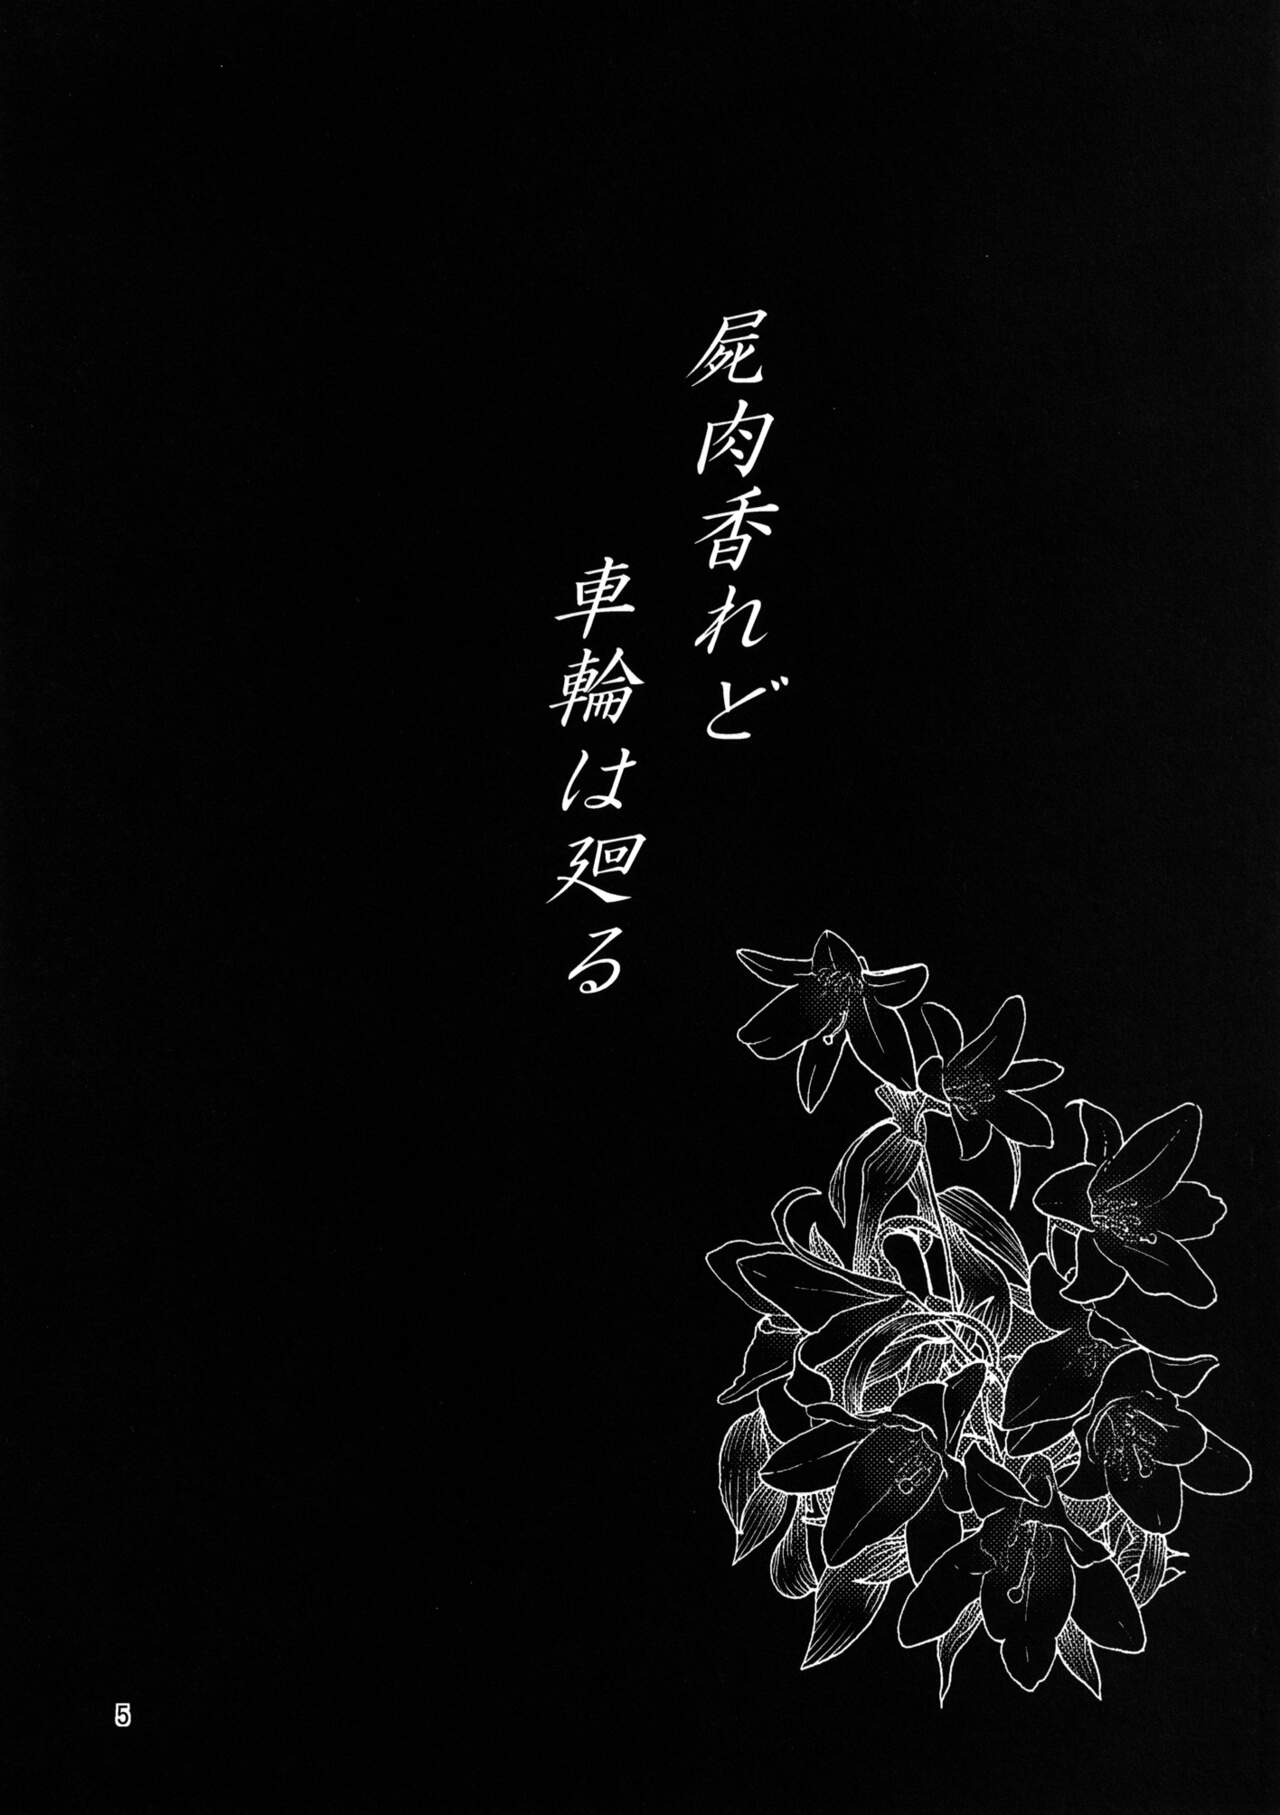 屍肉香れど
車輪は廻る
5